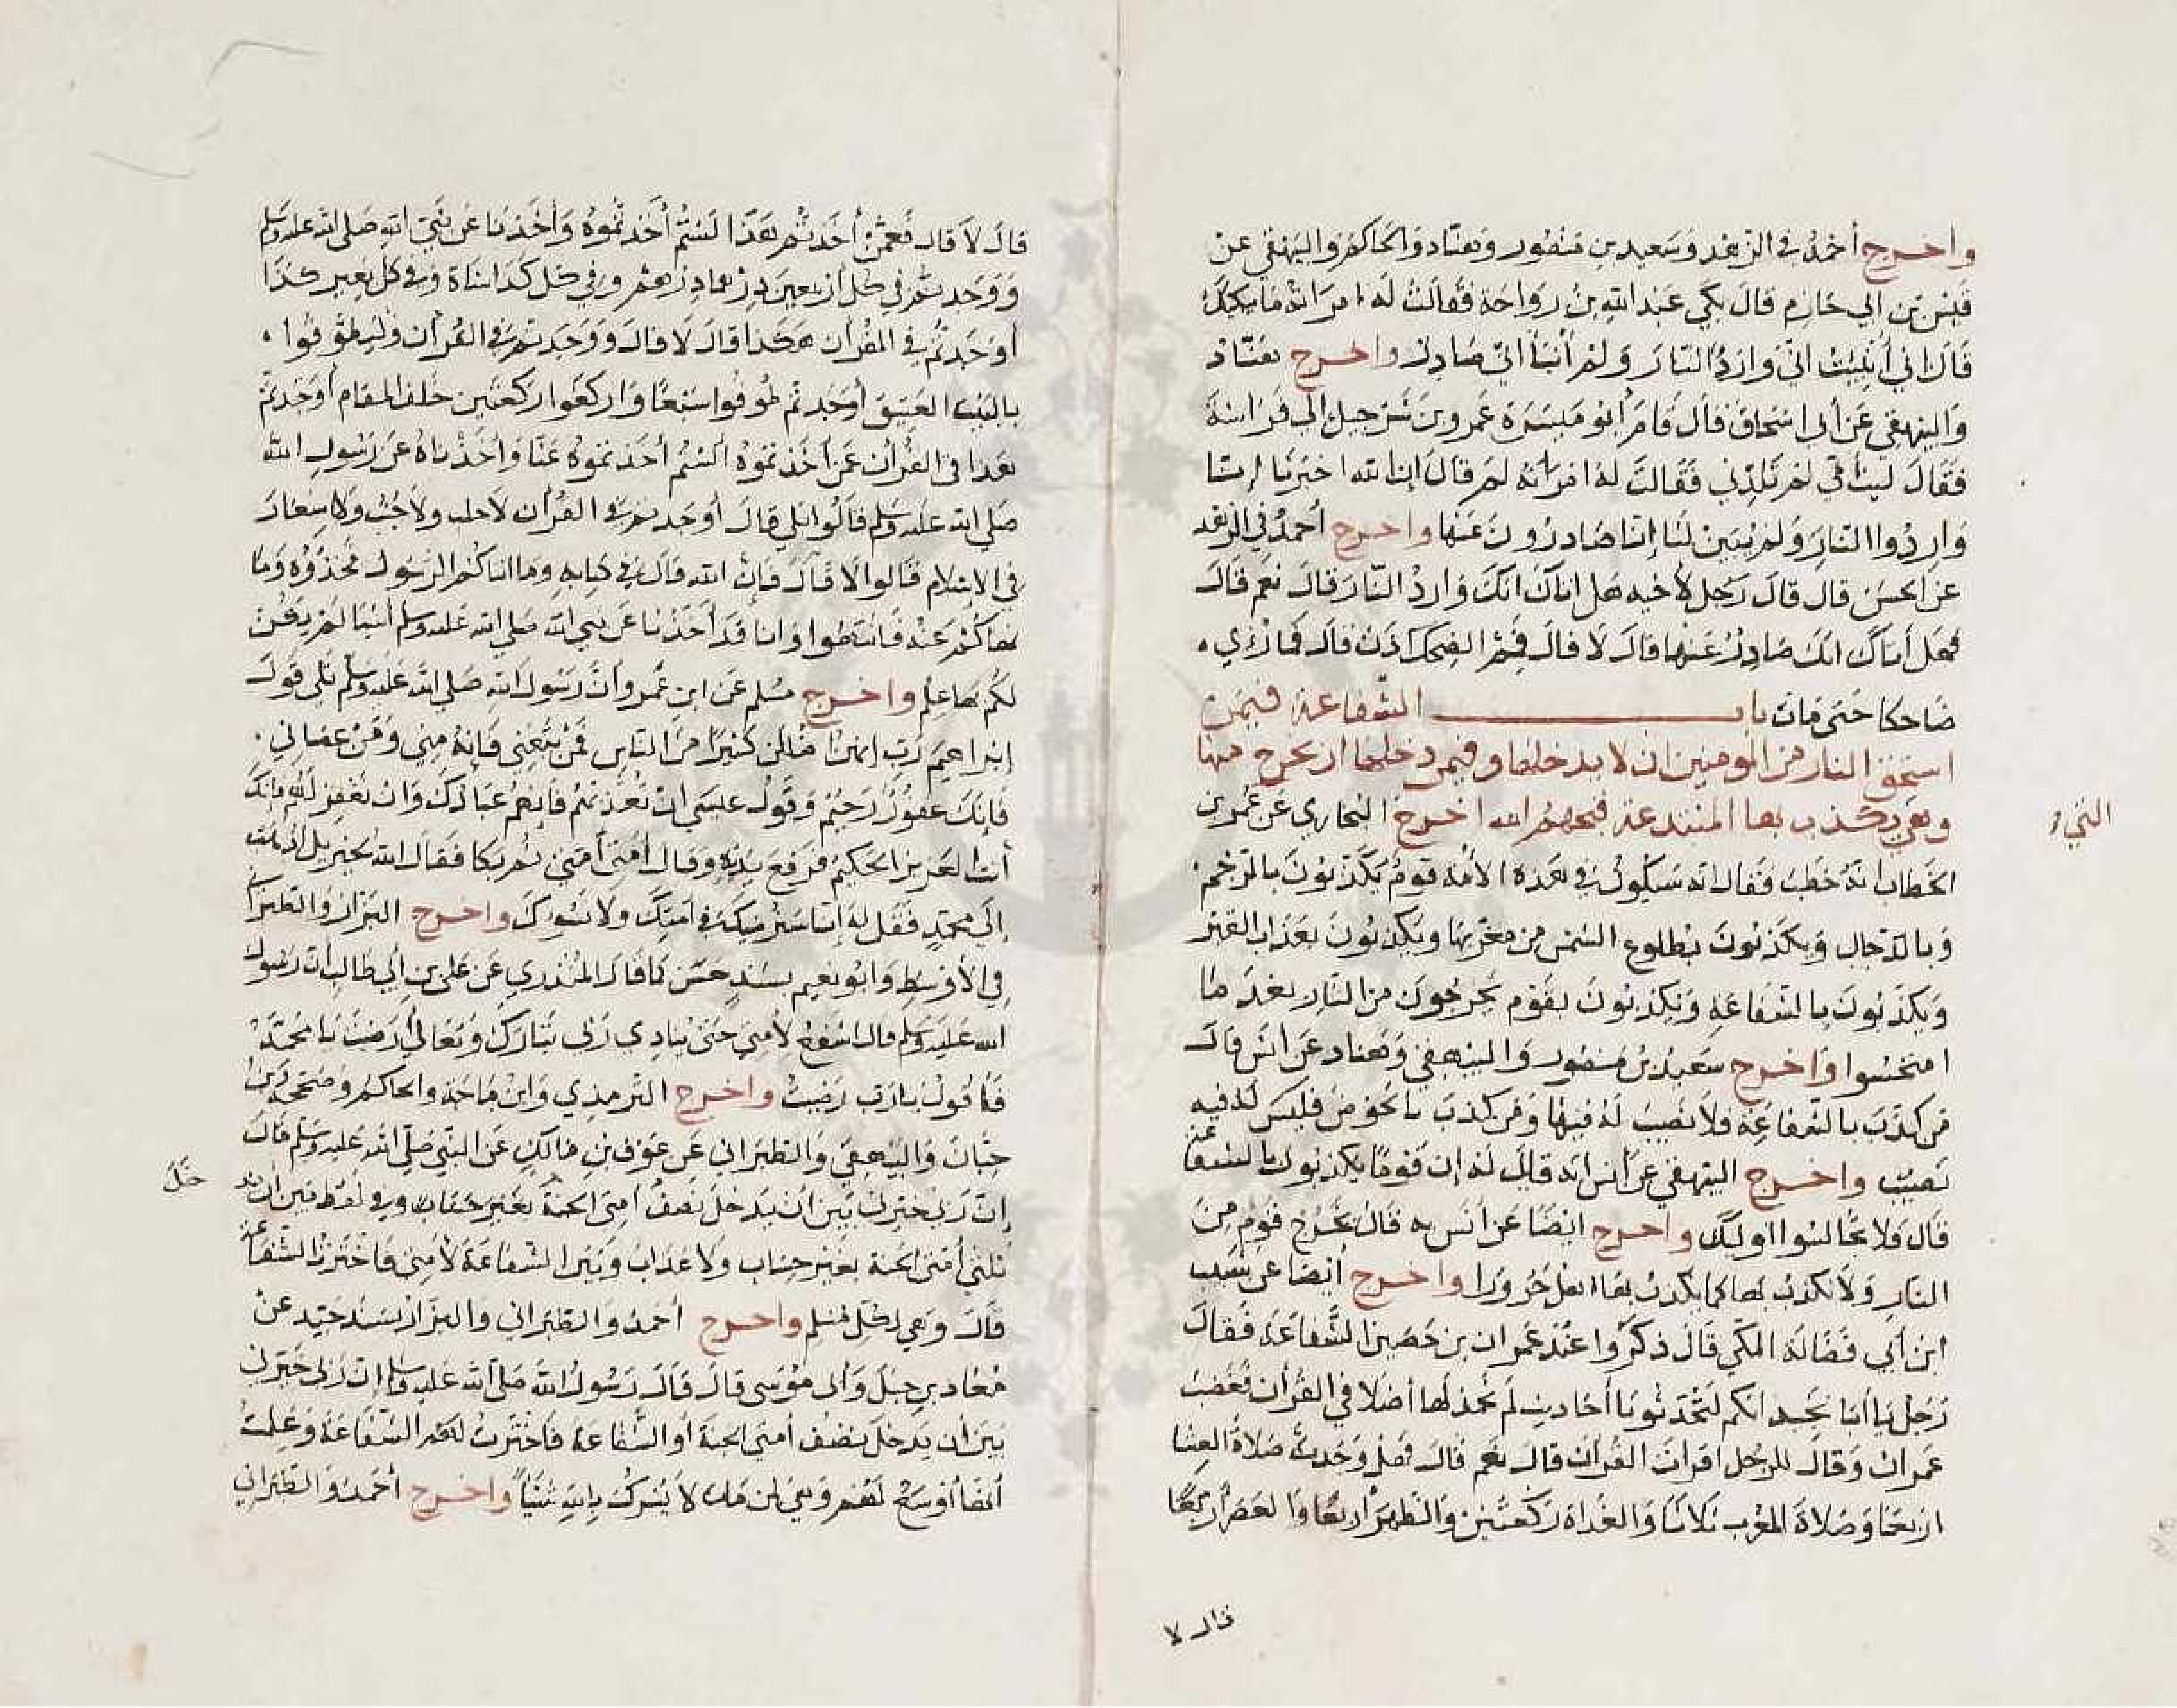 واخرج أحمد في الزهد وسعيد بن منصور وهناد والحاكم والبيهقي عن
قيس بن ابي حازم قال بكي عبد الله بن رواحة فقالت له امراته ما يبكيك
قال اني أنبئت اني وارد النار ولم أنبأ اني صادر واخرج هناد
والبيهقي عن أبي اسحاق قال قام أبو ميسرة عمرو بن شرحبيل إلى فراشه
فقال ليت أمي لم تلدني فقالت له امرأته لم قال إن الله اخبرنا إنا
واردوا النار ولم يبين لنا إنا صادرون عنها واخرج أحمد في الزهد
عن الحسن قال قال رجل لأخيه هل اتاك انك وارد النار قال نعم قال
فهل أتاك انك صادر عنها قال لا قال ففيم الضحك اذن قال فما رُئي
ضاحكا حتى مات باب الشفاعة فيمن
استحق النار من المومنين ان لا يدخلها وفيمن دخلها ان يخرج منها
وهي يكذب بها المبتدعة قبحهم الله اخرج البخاري عن عمر بن
التي
الخطاب انه خطب فقال انه سيكون في هذه الأمة قوم يكذبون بالرجم
وبالدجال ويكذبون بطلوع الشمس من مغربها ويكذبون بعذاب القبر
ويكذبون بالشفاعة ويكذبون بقوم يخرجون من النار بعد ما
امتحشوا واخرج سعيد بن منصور والبيهقي وهناد عن انس قال
من كذب بالشفاعة فلا نصيب له فيها ومن كذب بالحوض فليس له فيه
نصيب واخرج البيهقي عن أنس انه قال له إن قوما يكذبون بالشفاعة
قال فلا تجالسوا اولئك واخرج ايضا عن أنس به قال يخرج قوم من
النار ولا نكذب بها كما يكذب بها اهل حرورا واخرج أيضا عن شبيب
ابن أبي فضالة المكي قال ذكروا عند عمران بن حصين الشفاعة فقال
رجل يا أبا نجيد انكم لتحدثونا أحاديث لم نجد لها أصلا في القرآن فغضب
عمران وقال للرجل اقرات القرآن قال نعم قال فهل وجدت صلاة العشا
اربعا وصلاة المغرب ثلاثا والغداة ركعتين والظهر أربعا والعصر أربعا
قال لا
قال لا قال فعمن أخذتم هذا لستم أخذتموه وأخذنا عن نبي الله صلى الله عليه وسلم
ووجدتم في كل أربعين درهما درهم وفي كل كذا شاة وفي كل بعير كذا
أوجدتم في القرآن هكذا قال لا قال ووجدتم في القرآن وليطوفوا
بالبيت العتيق أوجدتم طوفوا سبعا واركعوا ركعتين خلف المقام أوجدتم
هذا في القرآن عمن أخذتموه ألستم أخذتموه عنا وأخذناه عن رسول الله
صلى الله عليه وسلم قالوا بلى قال أوجدتم في القرآن لا جلب ولا جنب ولا شغار
في الاسلام قالوا لا قال فإن الله قال في كتابه وما اتاكم الرسول فخذوه وما
نهاكم عنه فانتهوا وانا قد أخذنا عن نبي الله صلى الله عليه وسلم أشيا لم يكن
لكم بها علم واخرج مسلم عن ابن عمرو أن رسول الله صلى الله عليه وسلم تلى قول
إبراهيم رب إنهن اضللن كثيرا من الناس فمن تبعني فإنه مني ومن عصاني
فإنك غفور رحيم وقول عيسى إن تعذبهم فإنهم عبادك وان تغفر لهم فإنك
أنت العزيز الحكيم فرفع يديه وقال أمتي أمتي ثم بكا فقال الله يا جبريل اذهب
إلى محمد فقل له إنا سنرضيك في أمتك ولا نسوك واخرج البزار والطبراني
في الأوسط وابو نعيم بسند حسن كما قال المنذري عن علي بن ابي طالب ان رسول
الله عليه وسلم قال اشفع لأمتي حتى ينادي ربي تبارك وتعالى أرضيت يا محمد
فأقول يا رب رضيت واخرج الترمذي وابن ماجة والحاكم وصححه وابن
حبان والبيهقي والطبراني عن عوف بن مالك عن النبي صلى الله عليه وسلم قال
إن ربي خيرني بين أن يدخل نصف أمتي الجنة بغير حساب وفي لفظ بين أن يد
خل
ثلثي أمتي الجنة بغير حساب ولا عذاب وبين الشفاعة لأمتي فاخترت الشفاعة
قال وهي لكل مسلم واخرج أحمد والطبراني والبزار بسند جيد عن
معاذ بن جبل وأبي موسى قال قال رسول الله صلى الله عليه وسلم إن ربي خيرني
بين ان يدخل نصف أمتي الجنة أو الشفاعة فاخترت لهم الشفاعة وعلمت
أنها أوسع لهم وهي لمن مات لا يشرك بالله شيئا واخرج أحمد والطبراني